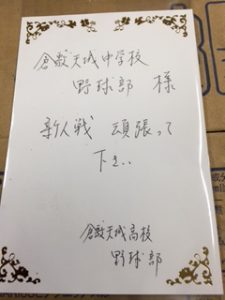 倉敷天城中学校
野球部 様
新人戦 頑張って
下さい
倉敷天城高校
野球部